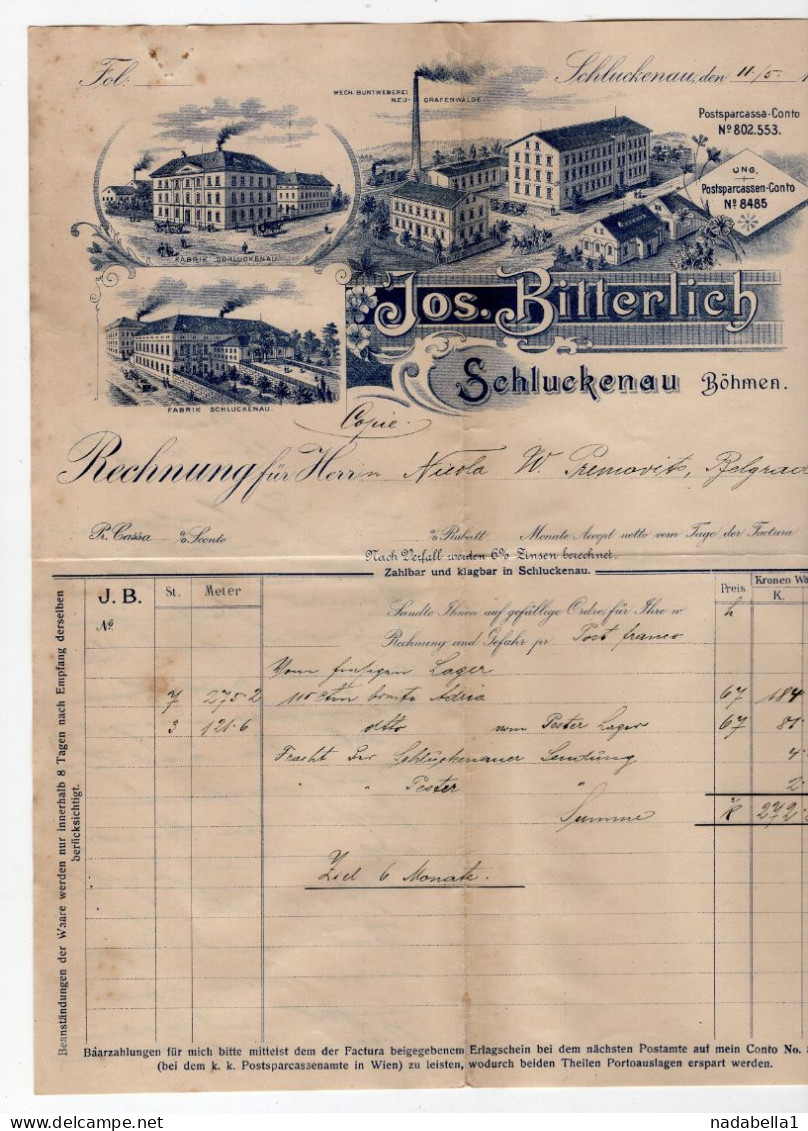 Fol:
Schluckenau, den 11./5. 1
MECH. BUNTWEBEREI
NEU- GRAFENWALDE
Postsparcassa-Conto
Nº 802.553.
UNG.
Postsparcassen-Conto
Nº 8485
FABRIK SCHLUCKENAU.
Jos. Bitterlich
Schluckenau Böhmen.
FABRIK SCHLUCKENAU.
Copie.
Rechnung für Herrn Nicola W. Premovits, Belgrad
Pr. Cassa % Sconto % Rabatt Monate Accept netto vom Tage der Factura
Nach Verfall werden 6% Zinsen berechnet.
Zahlbar und klagbar in Schluckenau.
J. B. St. Meter Preis Kronen Wä
K.
Nº
Sandte Ihnen auf gefällige Ordre, für Ihre w h
Rechnung und Gefahr pr Post franco
Vom Lager
7 275.2 115 ctm Adria 67 184
3 121.6 dtto vom Pester Lager 67 81
Fracht der Schluckenauer Sendung 4
" " Pester " 2
Summe K 272.
Ziel 6 Monate.
Beanständungen der Waare werden nur innerhalb 8 Tagen nach Empfang derselben
berücksichtigt.
Baarzahlungen für mich bitte mittelst dem der Factura beigegebenem Erlagschein bei dem nächsten Postamte auf mein Conto No.
(bei dem k. k. Postsparcassenamte in Wien) zu leisten, wodurch beiden Theilen Portoauslagen erspart werden.
nadabella1